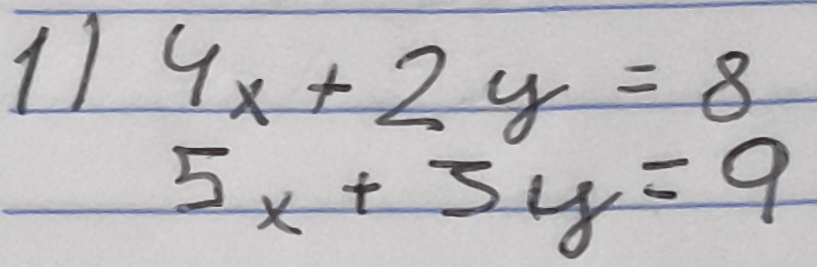 1) 4x + 2y = 8
5x + 3y = 9